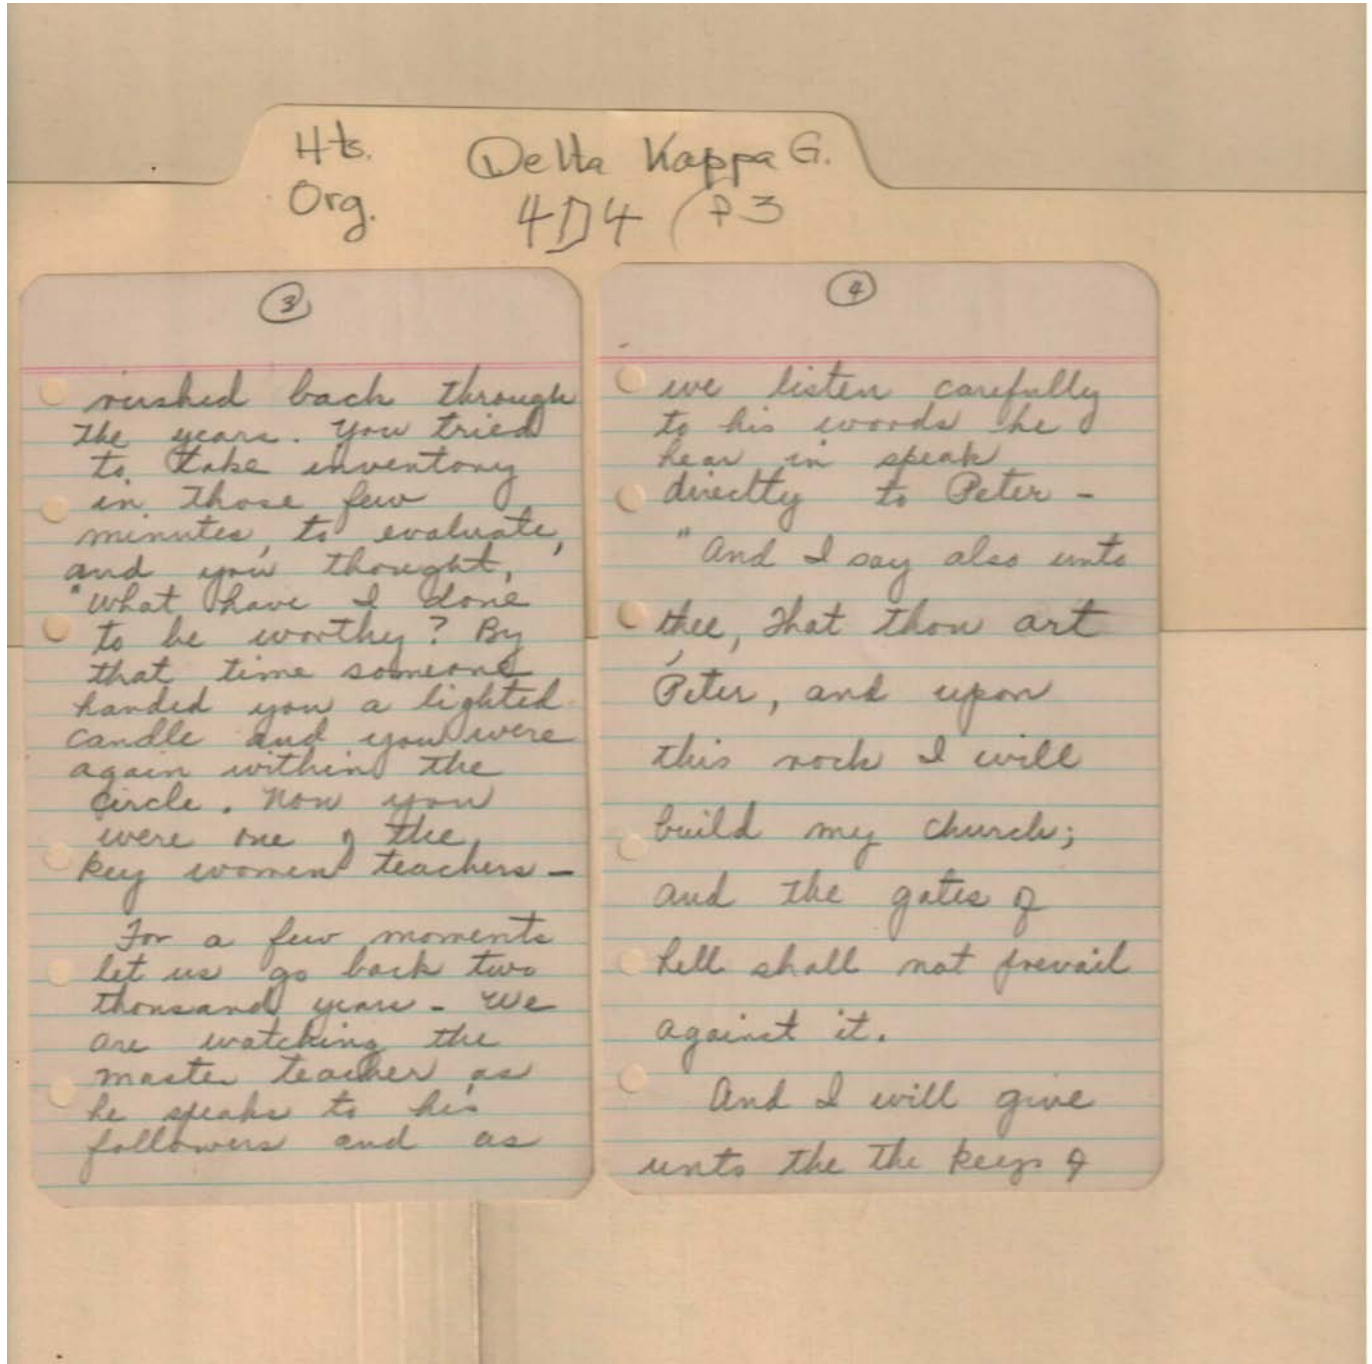 Hts. Delta Kappa G.
Org. 4D4 (P3
3
rushed back through
the years. You tried
to take inventory
in those few
minutes, to evaluate,
and you thought,
"What have I done
to be worthy? By
that time someone
handed you a lighted
candle and you were
again within the
circle. Now you
were one of the
key women teachers -
For a few moments
let us go back two
thousand years - We
are watching the
master teacher as
he speaks to his
followers and as
4
we listen carefully
to his words he
hear in speak
directly to Peter -
"And I say also unto
thee, That thou art
Peter, and upon
this rock I will
build my church;
and the gates of
hell shall not prevail
against it.
And I will give
unto the the keys of